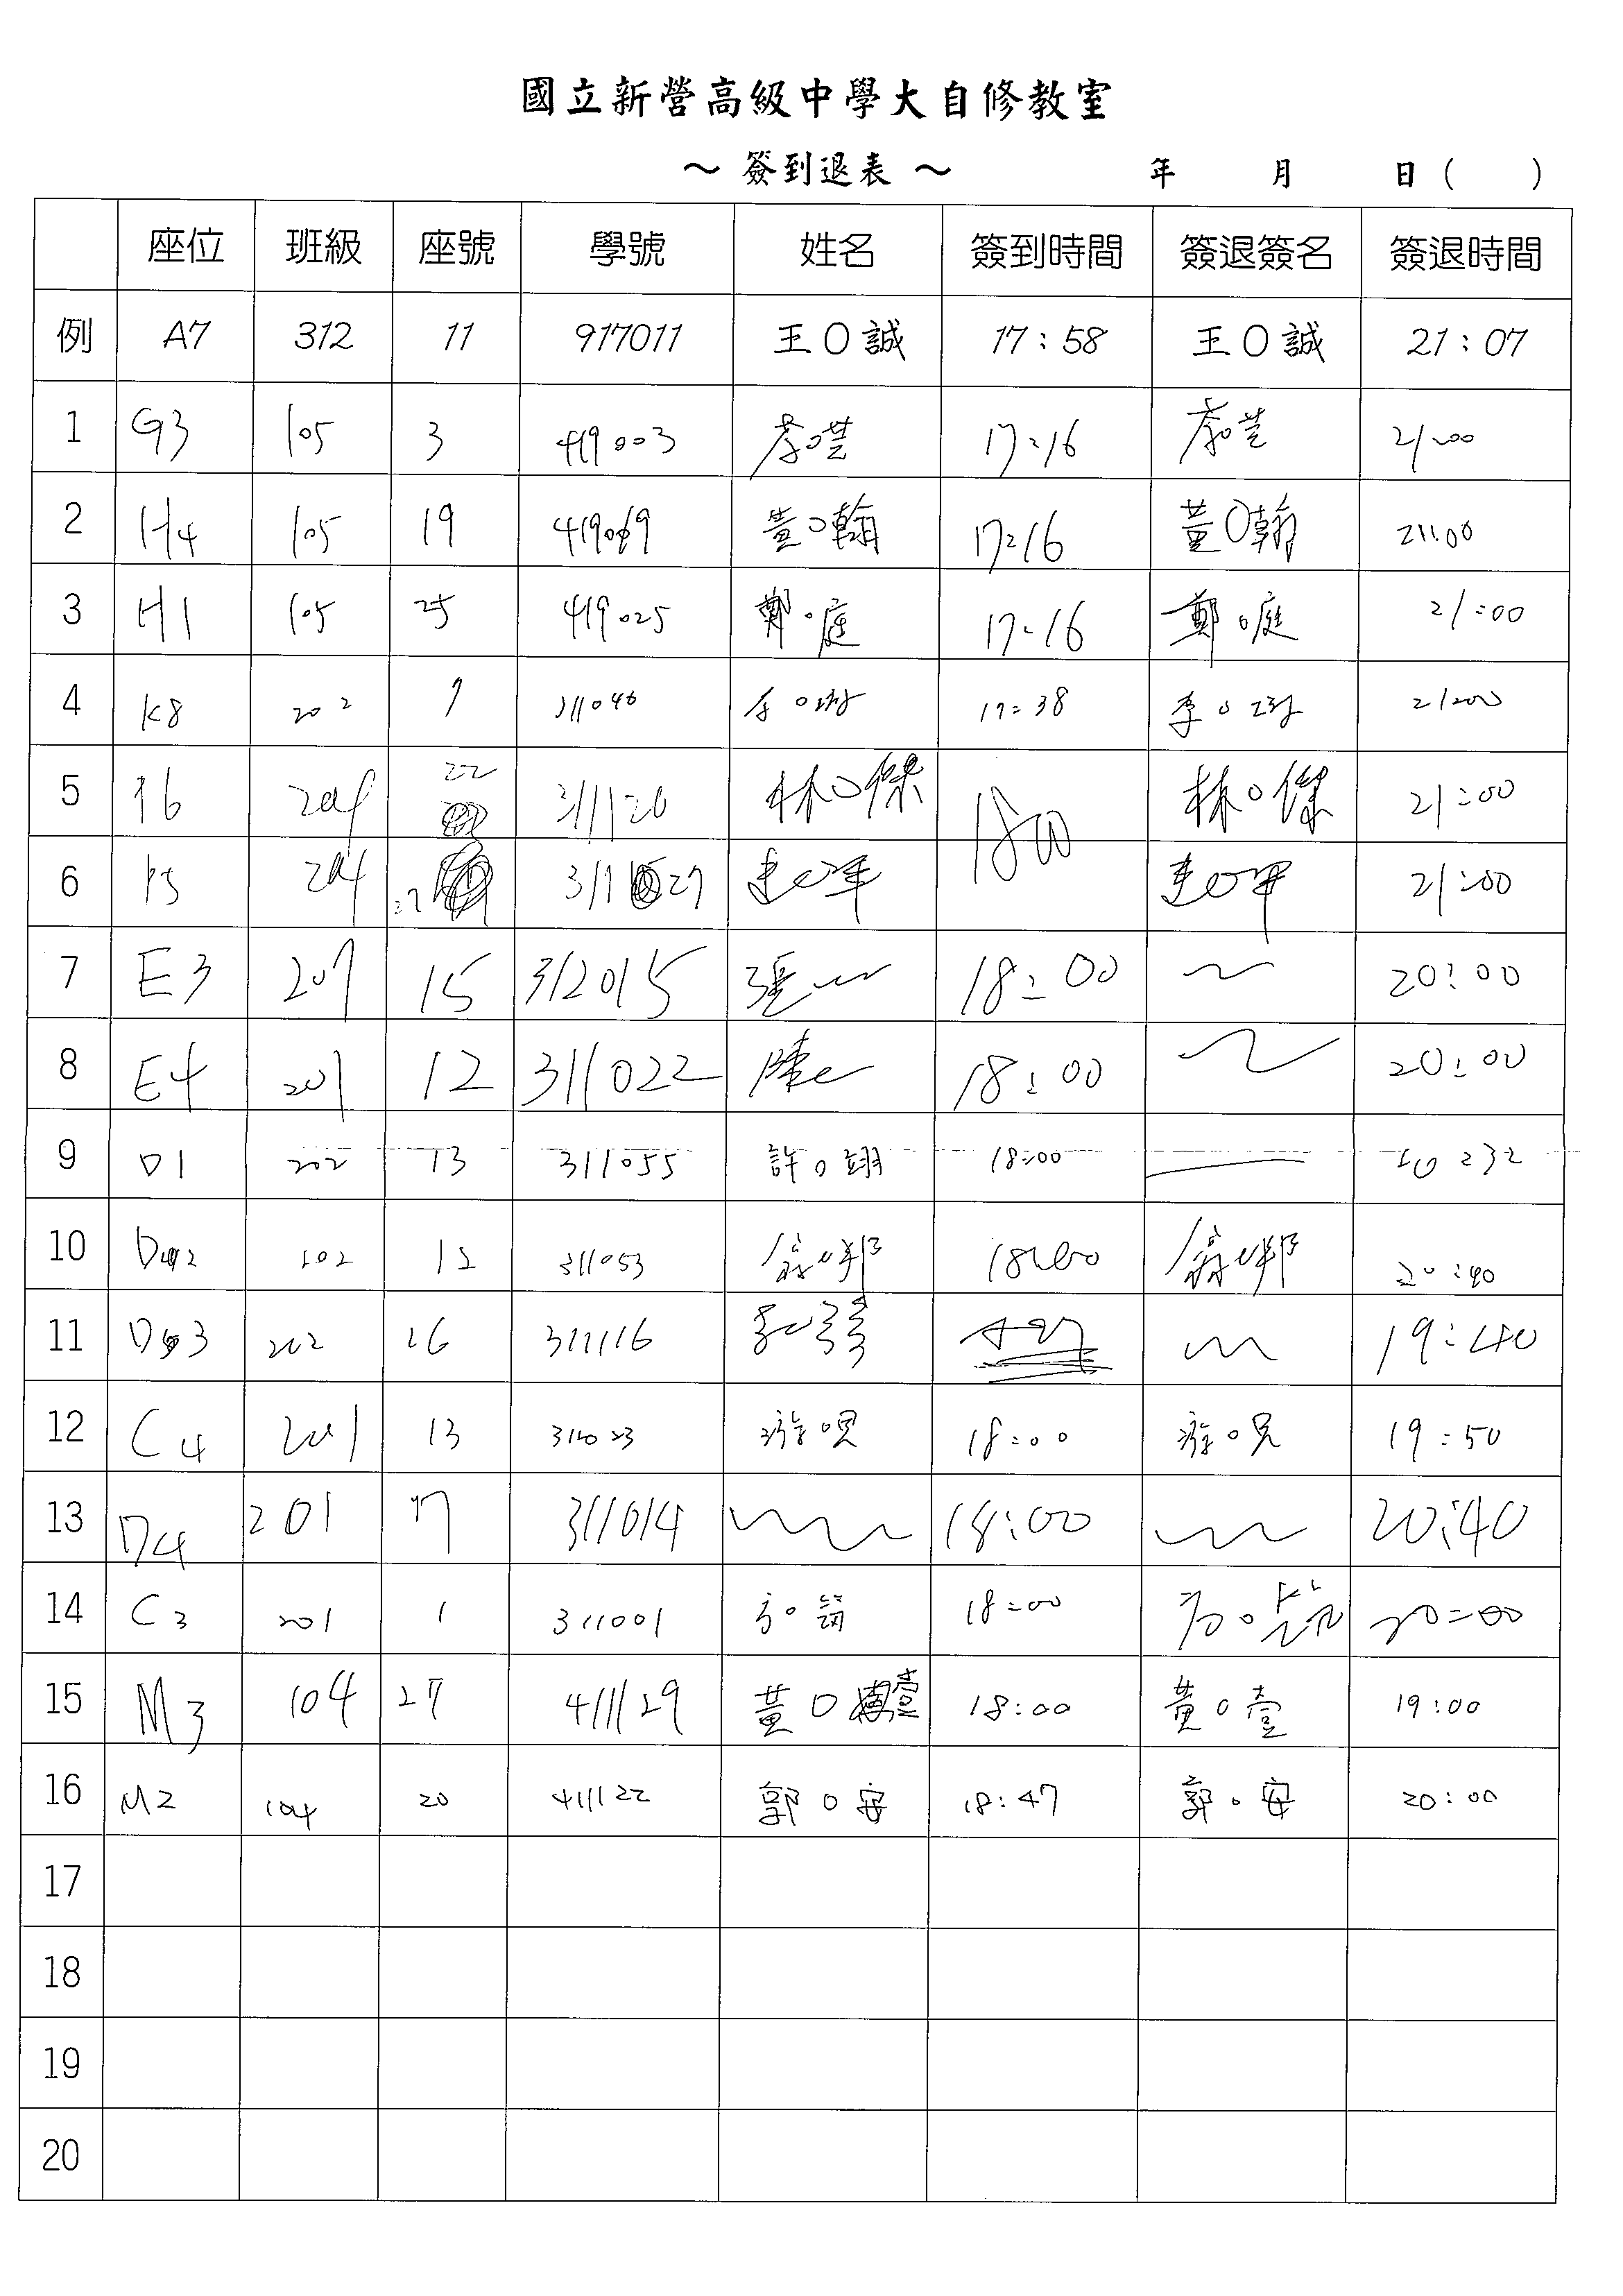 國立新營高級中學大自修教室
～ 簽到退表 ～ 年 月 日( )
座位 班級 座號 學號 姓名 簽到時間 簽退簽名 簽退時間
例 A7 312 11 917011 王O誠 17:58 王O誠 21:07
1 G3 105 3 419003 17:16 21:00
2 H4 105 19 419019 黃O翰 17:16 黃O翰 21:00
3 H1 105 25 419025 鄭O庭 17:16 鄭O庭 21:00
4 K8 202 7 311046 李O 17:38 李O 21:00
5 204 22 311120 林O傑 1800 林O傑 21:00
6 204 27 311127 21:00
7 E3 207 15 312015 張 18:00 20:00
8 E4 201 12 311022 陳 18:00 20:00
9 D1 202 13 311055 許O翊 18:00
10 D2 202 12 311053 翁O邦 18:00 翁O邦 20:40
11 D3 202 26 311116 19:40
12 C4 201 13 311023 游O 18:00 游O 19:50
13 D4 201 7 311014 18:00 20:40
14 C3 201 1 311001 方O筑 18:00 方O筑 20:00
15 M3 104 27 411129 黃O壹 18:00 黃O壹 19:00
16 M2 104 20 411122 郭O安 18:47 郭O安 20:00
17
18
19
20